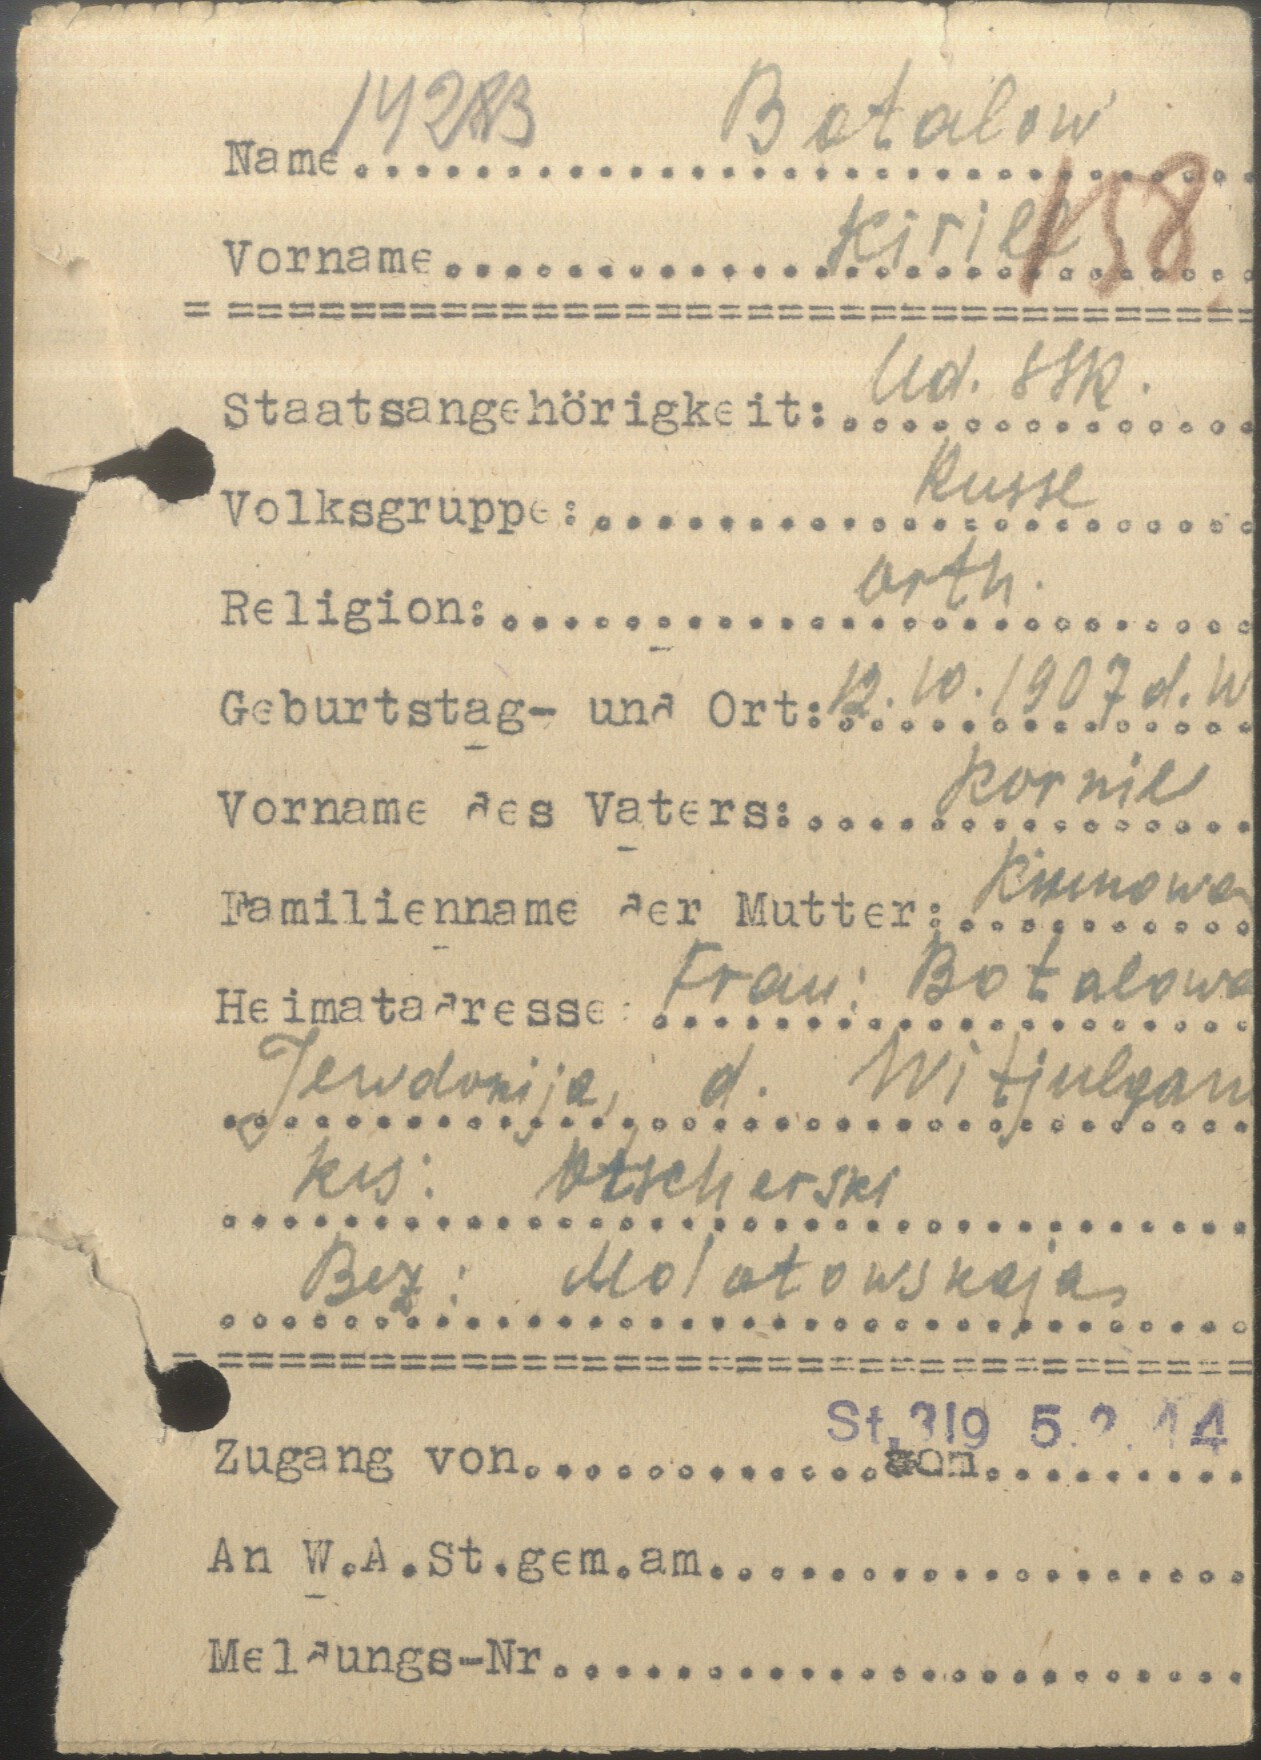 14283 Botalow
Name
158
Vorname Kirill
Staatsangehörigkeit: Ud. SSR.
Volksgruppe: Russe
Religion: orth.
Geburtstag- und Ort: 12.10.1907 d. W
Vorname des Vaters: Kornil
Familienname der Mutter:
Heimatadresse: Frau: Botalowa
Jewdokija, d. Witjulgan
krs: Otscherski
Bez: Molotowskaja
St. 319 5.2.44
Zugang von
An W.A.St.gem.am
Meldungs-Nr